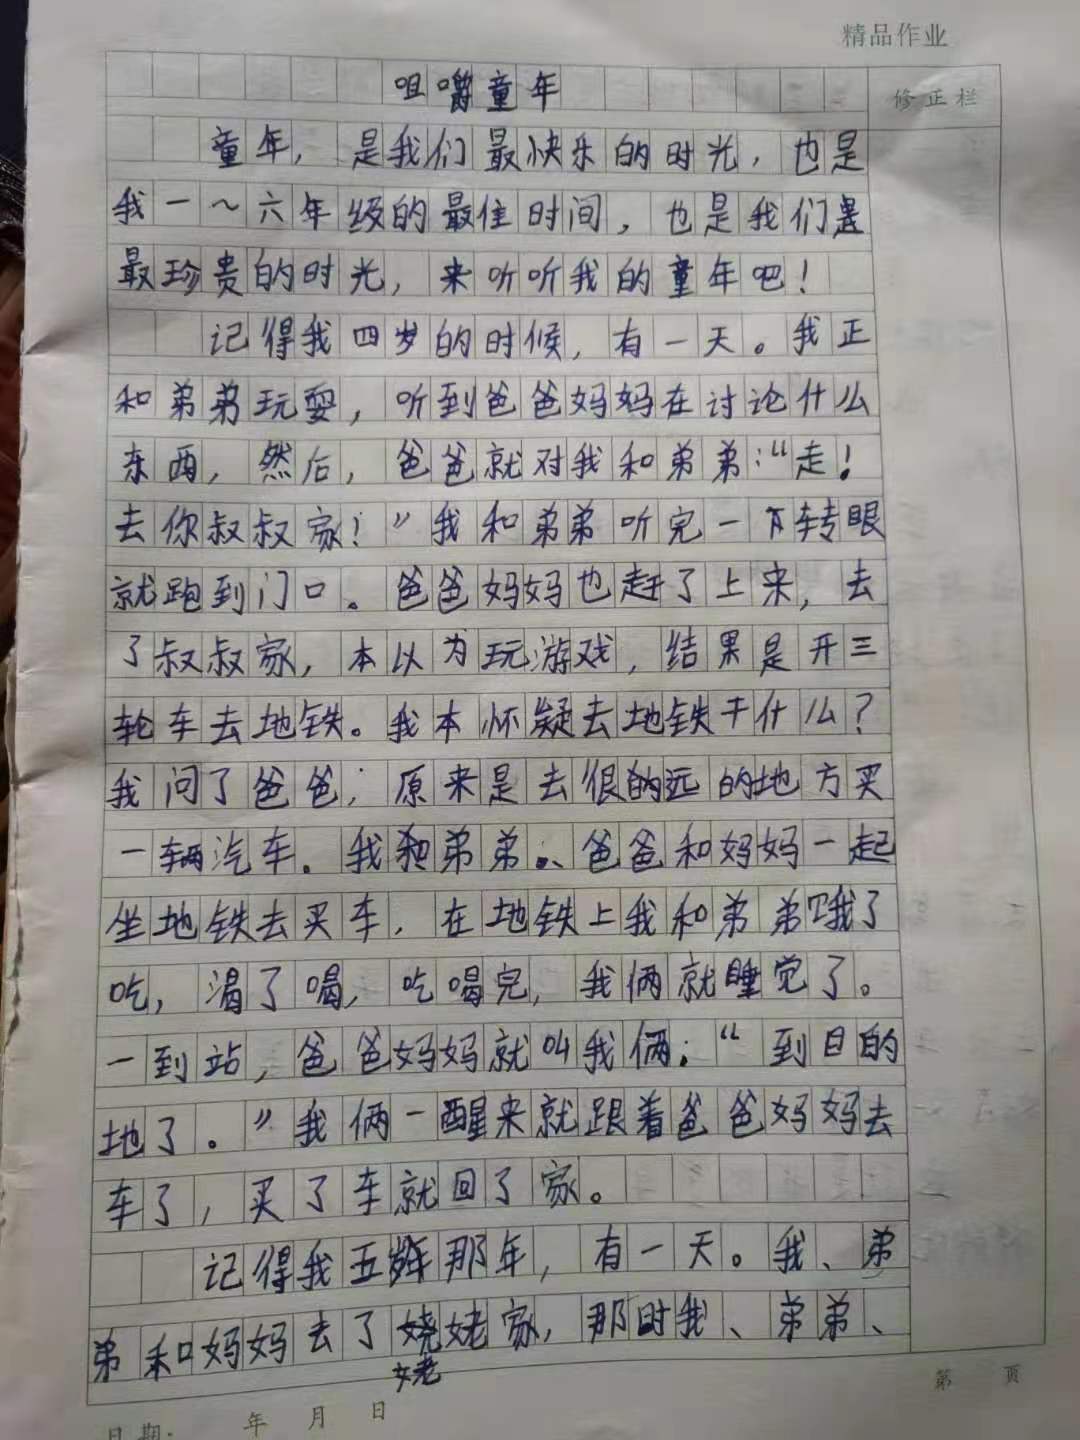 精品作业
修正栏
咀嚼童年
童年，是我们最快乐的时光，也是
我一～六年级的最佳时间，也是我们是
最珍贵的时光，来听听我的童年吧！
记得我四岁的时候，有一天。我正
和弟弟玩耍，听到爸爸妈妈在讨论什么
东西，然后，爸爸就对我和弟弟：“走！
去你叔叔家！”我和弟弟听完一下转眼
就跑到门口。爸爸妈妈也赶了上来，去
了叔叔家，本以为玩游戏，结果是开三
轮车去地铁。我本怀疑去地铁干什么？
我问了爸爸；原来是去很的远的地方买
一辆汽车。我和弟弟、爸爸和妈妈一起
坐地铁去买车，在地铁上我和弟弟饿了
吃，渴了喝，吃喝完，我俩就睡觉了。
一到站，爸爸妈妈就叫我俩：“到目的
地了。”我俩一醒来就跟着爸爸妈妈去
车了，买了车就回了家。
记得我五岁那年，有一天。我、弟
弟和妈妈去了姥姥家，那时我、弟弟、
姥
第 页
日期： 年 月 日